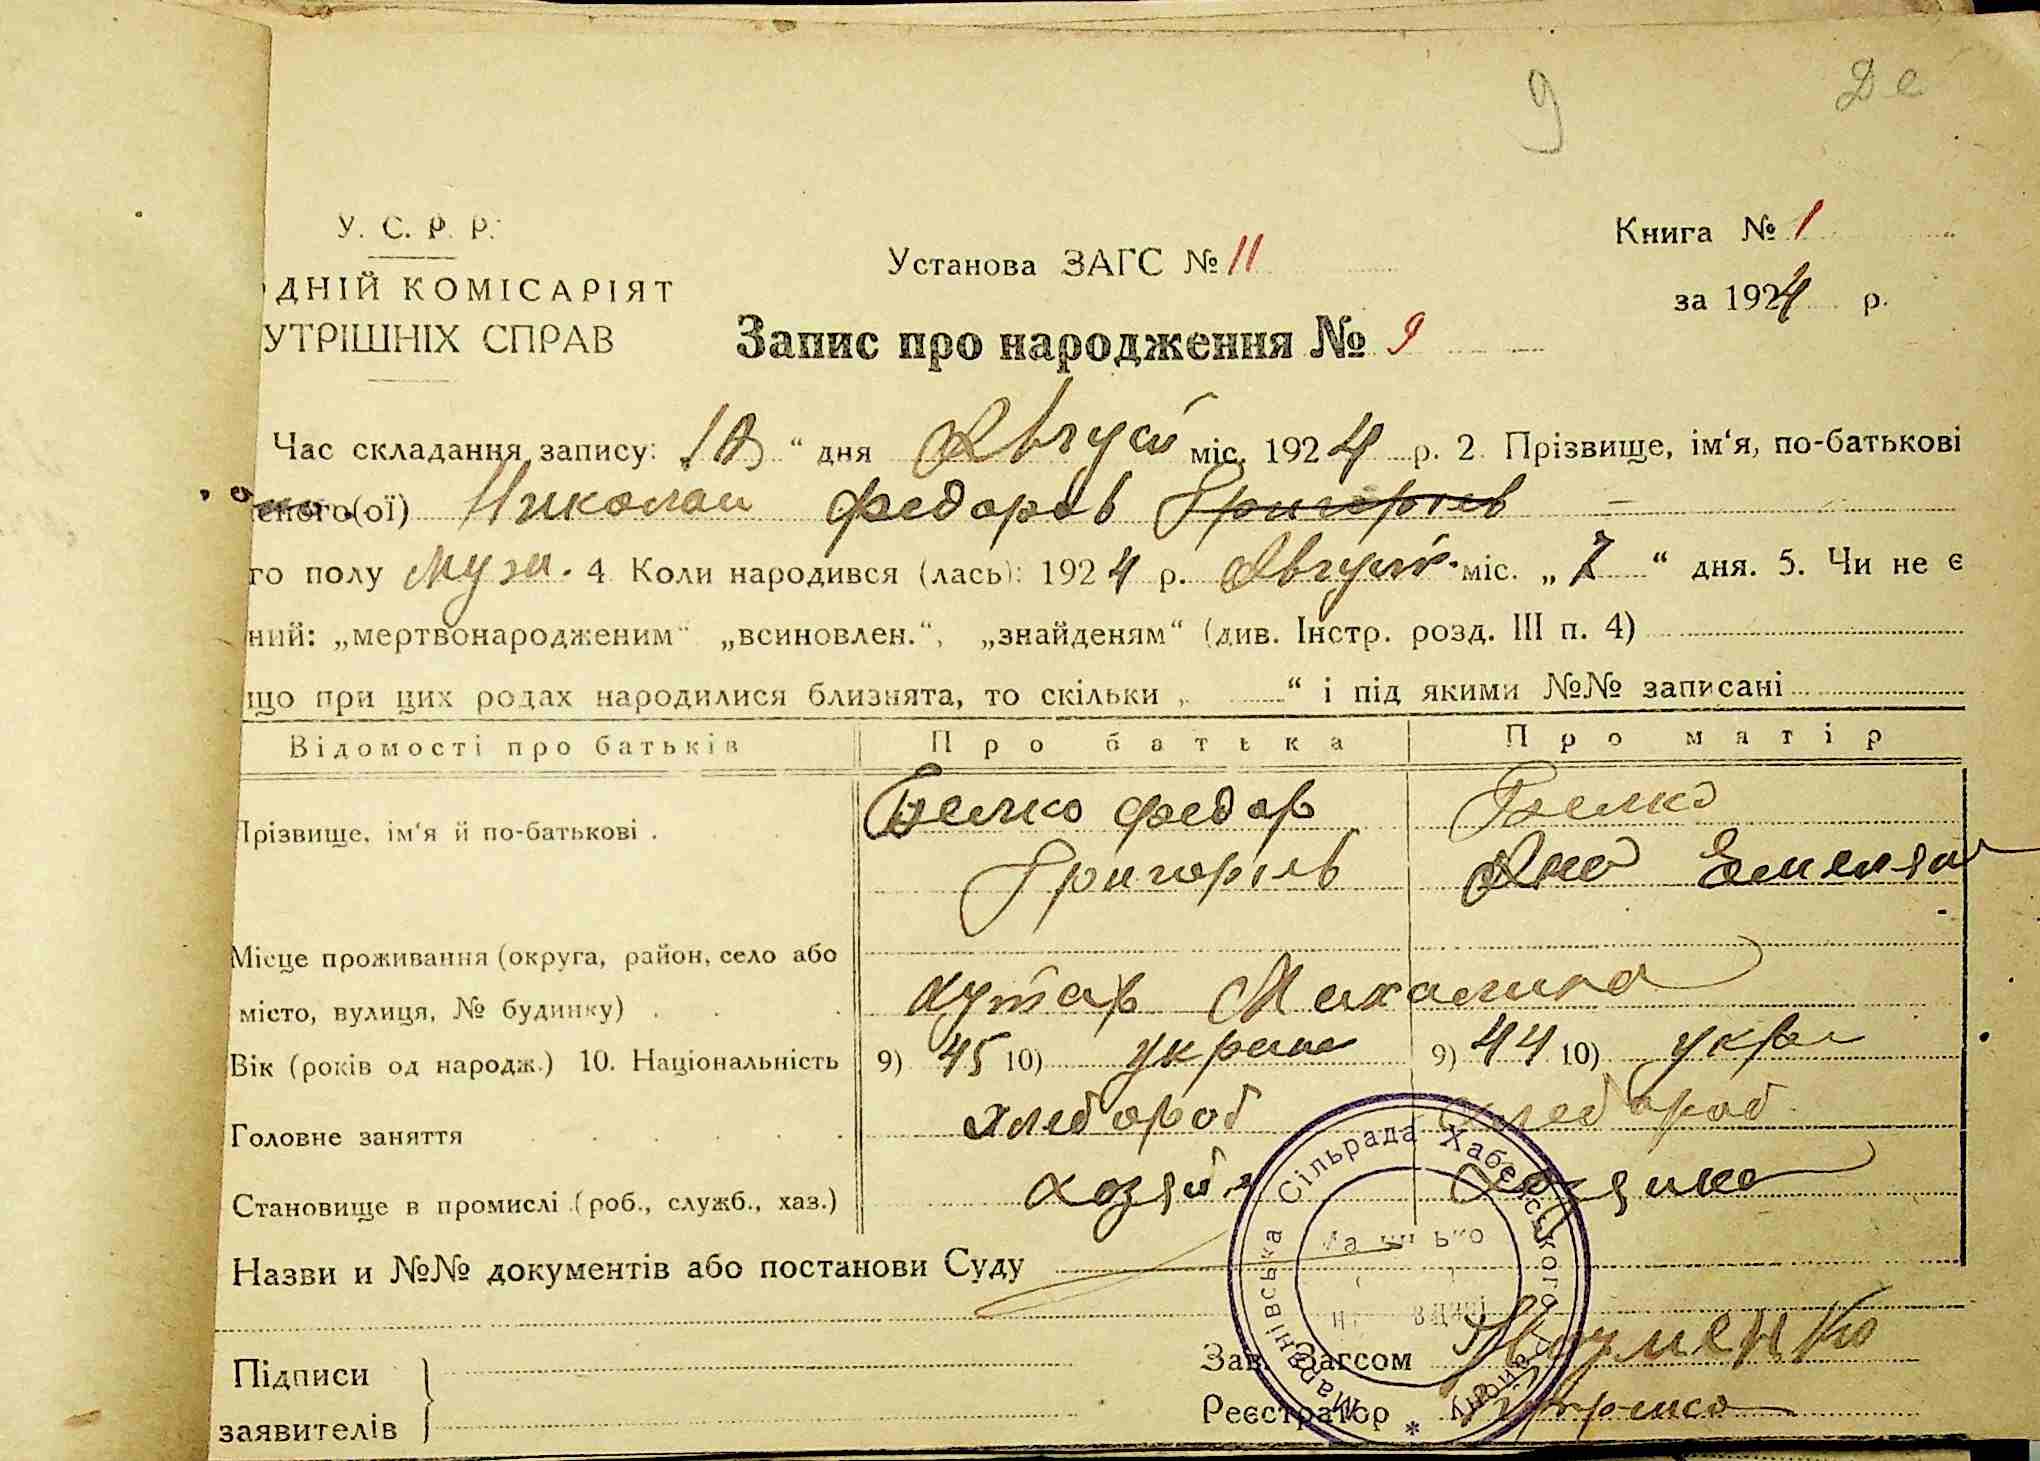 9 Де
У. С. Р. Р.
Установа ЗАГС № 11
Книга № 1
ОДНІЙ КОМІСАРІЯТ
за 1924 р.
УТРІШНІХ СПРАВ
Запис про народження № 9
Час складання запису: 18 “ дня Август міс. 1924 р. 2. Прізвище, ім‘я, по-батькові
еного(ої) Николай Федоров Григорьев
го полу муж. 4 Коли народився (лась): 1924 р. Август. міс. „ 7 “ дня. 5. Чи не є
ний: „мертвонародженим“ „всиновлен.“, „знайденям“ (див. Інстр. розд. III п. 4)
що при цих родах народилися близнята, то скільки „ “ і під якими №№ записані
Відомості про батьків Про батька Про матір
Прізвище, ім‘я й по-батькові . Белко Федор Белко
Григорьев Яна Емельян
Місце проживання (округа, район, село або
місто, вулиця, № будинку) . . . хутор Михалина
Вік (років од народж.) 10. Національність 9) 45 10) украин 9) 44 10) укра
Головне заняття хлебороб хлебороб
Становище в промислі (роб., служб., хаз.) хозяин хозяика
Назви и №№ документів або постанови Суду
Підписи
заявителів
Зав. Загсом Науменко
Реєстратор
Мар‘янівська Сільрада Хабенського Району *